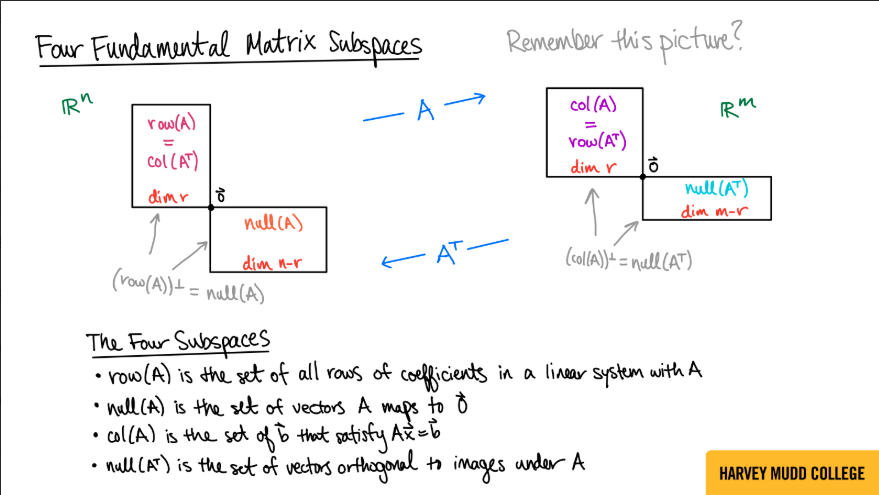 Four Fundamental Matrix Subspaces
Remember this picture?
ℝⁿ
row(A)
=
col(Aᵀ)
dim r
0⃗
null(A)
dim n-r
(row(A))⊥ = null(A)
A
Aᵀ
col(A)
=
row(Aᵀ)
dim r
0⃗
ℝᵐ
null(Aᵀ)
dim m-r
(col(A))⊥ = null(Aᵀ)
The Four Subspaces
• row(A) is the set of all rows of coefficients in a linear system with A
• null(A) is the set of vectors A maps to 0⃗
• col(A) is the set of b⃗ that satisfy Ax⃗=b⃗
• null(Aᵀ) is the set of vectors orthogonal to images under A
HARVEY MUDD COLLEGE